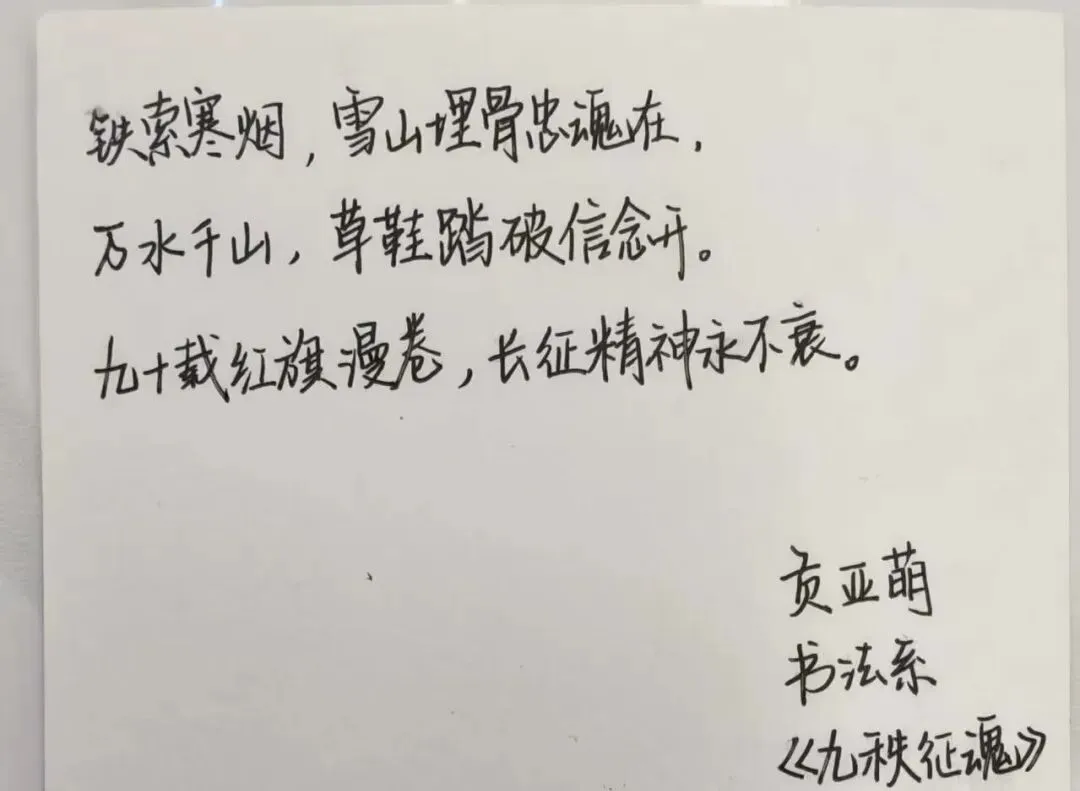 铁索寒烟，雪山埋骨忠魂在，
万水千山，草鞋踏破信念开。
九十载红旗漫卷，长征精神永不衰。
贠亚萌
书法系
《九秩征魂》